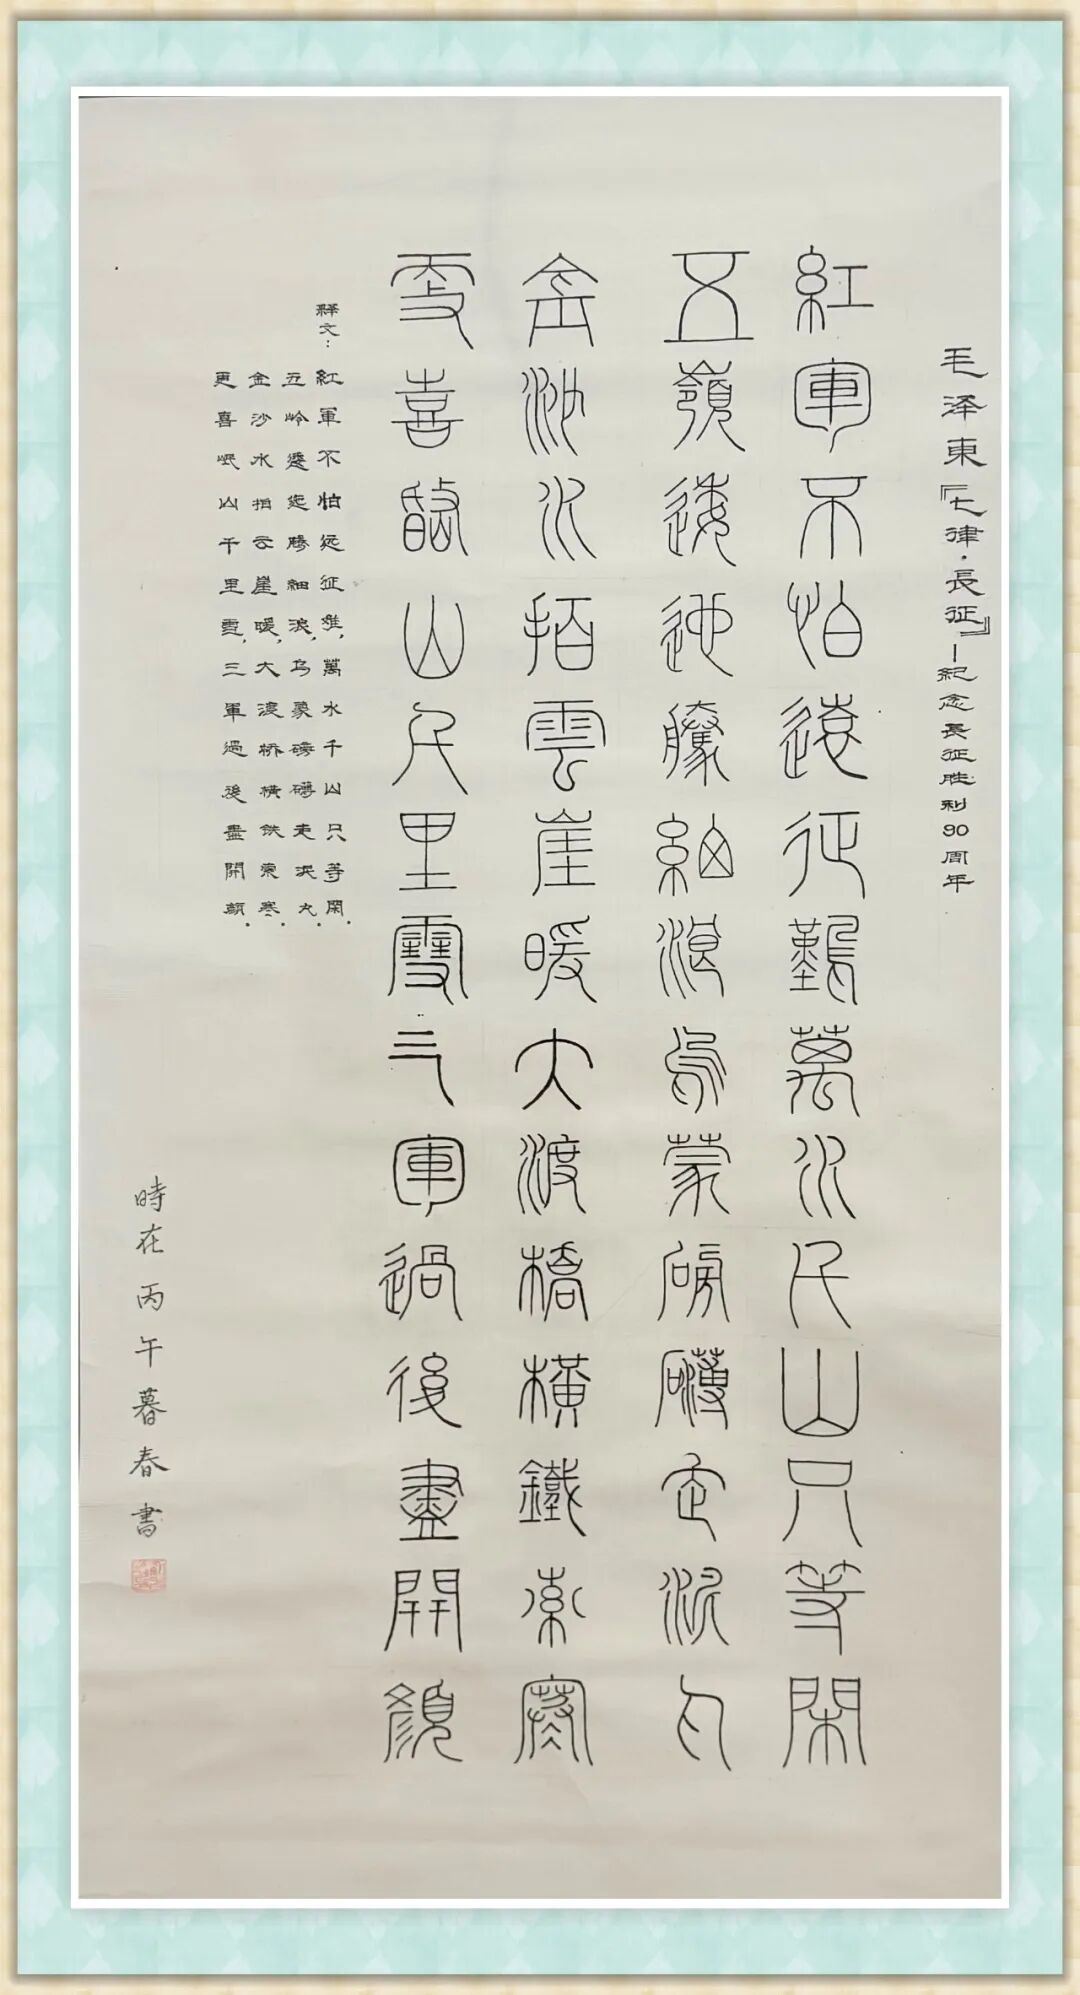 毛泽東『七律·長征』—紀念長征胜利90周年
紅軍不怕遠征難萬水千山只等閑
五嶺逶迤騰細浪烏蒙磅礴走泥丸
金沙水拍雲崖暖大渡橋橫鐵索寒
更喜岷山千里雪三軍過後盡開顏
释文：
紅軍不怕远征难，萬水千山只等閑.
五岭逶迤腾细浪，乌蒙磅礴走泥丸.
金沙水拍云崖暖，大渡桥横鉄索寒.
更喜岷山千里雪，三軍過後盡開顏.
時在丙午暮春書